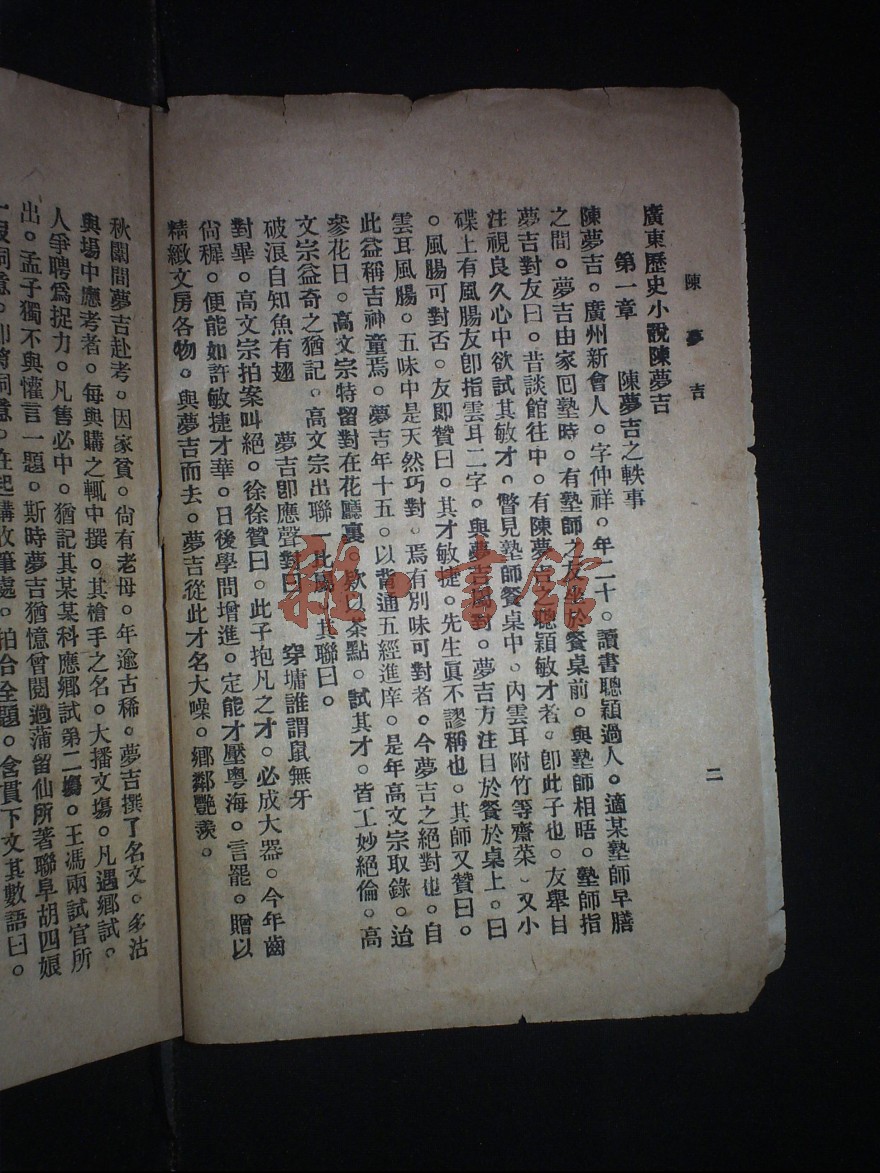 陳夢吉
二
廣東歷史小說陳夢吉
第一章 陳夢吉之軼事
陳夢吉。廣州新會人。字仲祥。年二十。讀書聰穎過人。適某塾師早膳
之間。夢吉由家回塾時。有塾師之友坐於餐桌前。與塾師相晤。塾師指
夢吉對友曰。昔談館往中。有陳夢吉之聰穎敏才者。卽此子也。友舉目
注視良久心中欲試其敏才。瞥見塾師餐桌中。內雲耳附竹等齋菜。又小
碟上有風腸友卽指雲耳二字。與夢吉屬對。夢吉方注目於餐於桌上。曰
。風腸可對否。友即贊曰。其才敏捷。先生眞不謬稱也。其師又贊曰。
雲耳風腸。五味中是天然巧對。焉有別味可對者。今夢吉之絕對也。自
此益稱吉神童焉。夢吉年十五。以背通五經進庠。是年高文宗取錄。迨
參花日。高文宗特留對在花廳裏。欵以茶點。試其才。皆工妙絕倫。高
文宗益奇之猶記。高文宗出聯一比屬其聯曰。
破浪自知魚有翅 夢吉卽應聲對曰 穿墉誰謂鼠無牙
對畢。高文宗拍案叫絕。徐徐贊曰。此子抱凡之才。必成大器。今年齒
尙穉。便能如許敏捷才華。日後學問增進。定能才壓粵海。言罷。贈以
精緻文房各物。與夢吉而去。夢吉從此才名大噪。鄉鄰艷羨。
秋闈間夢吉赴考。因家貧。尙有老母。年逾古稀。夢吉撰了名文。多沽
與場中應考者。每與購之輒中撰。其槍手之名。大播文塲。凡遇鄉試。
人爭聘爲捉力。凡售必中。猶記其某某科應鄉試第二塲。王馮兩試官所
出。孟子獨不與懽言一題。斯時夢吉猶憶曾閱過蒲留仙所著聯阜胡四娘
一段詞意。卽倣詞意。在起講收筆處。拍合全題。含貫下文其數語曰。
雅·書館